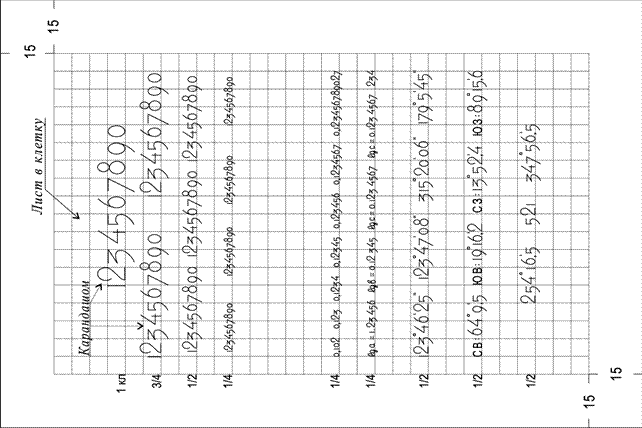 15
15
Лист в клетку
Карандашом
1 кл 1234567890
3/4 1234567890 1234567890
1/2 1234567890 1234567890 1234567890
1/4 1234567890 1234567890 1234567890 1234567890
1/4 0,102 0,123 0,1234 0,12345 0,123456 0,1234567
1/4 = 1.23 456 = 0.12 345 = 0.123 4567 = 0.123 4567 234
1/2 123°46'25" 123°47'08" 315°20'06" 179°5'45"
1/2 СВ:64°9',5 ЮВ:19°16',2 СЗ:13°52',4 ЮЗ:89°15',6
1/2 254°16',5 521 347°56',5
15
15